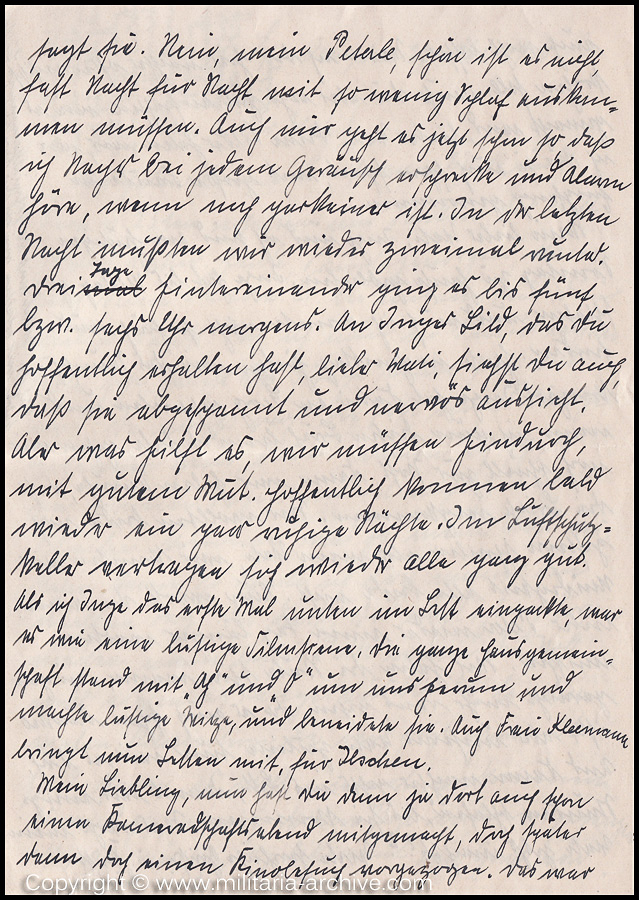 sagt sie. Nein, mein Peterle, schön ist es nicht,
fast Nacht für Nacht mit so wenig Schlaf auskom-
men müssen. Auch mir geht es jetzt schon so daß
ich Nachts bei jedem Geräusch erschrecke und Alarm
höre, wenn noch garkeiner ist. In der letzten
Nacht mußten wir wieder zweimal runter.
Tage
Drei mal hintereinander ging es bis fünf
bzw. sechs Uhr morgens. An Inges Bild, das du
hoffentlich erhalten hast, lieber Vati, siehst du auch,
daß sie abgespannt und nervös aussieht.
Aber was hilft es, wir müssen hindurch,
mit gutem Mut. Hoffentlich kommen bald
wieder ein paar ruhige Nächte. Im Luftschutz=
keller vertragen sich wieder alle ganz gut.
Als ich Inge das erste Mal unten im Bett einpackte, war
es wie eine lustige Filmscene. Die ganze Hausgemein=
schaft stand mit „Ach" und „O" um uns herum und
machte lustige Witze, und beneidete sie. Auch Frau Kleemann
bringt nun Betten mit, für Ilschen.
Mein Liebling, nun hast Du denn ja dort auch schon
einen Kameradschaftsabend mitgemacht, doch später
dann doch einen Kinobesuch vorgezogen. Das war
Copyright © www.militaria-archive.com